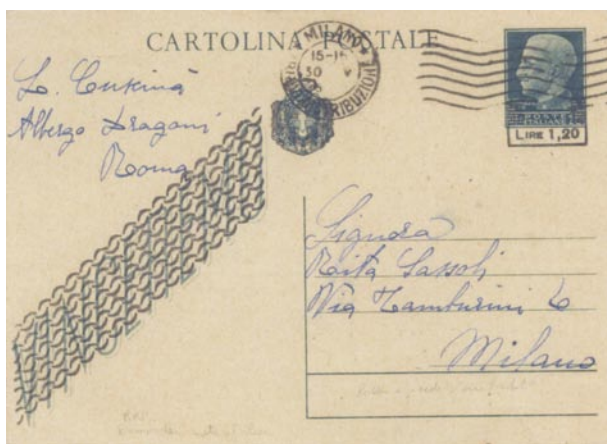 CARTOLINA POSTALE
MILANO
15-16
30 V
DISTRIBUZIONE
LIRE 1,20
L. Cusinà
Albergo Dragoni
Roma
Signora
Rita Sassoli
Via Tamburini 6
Milano